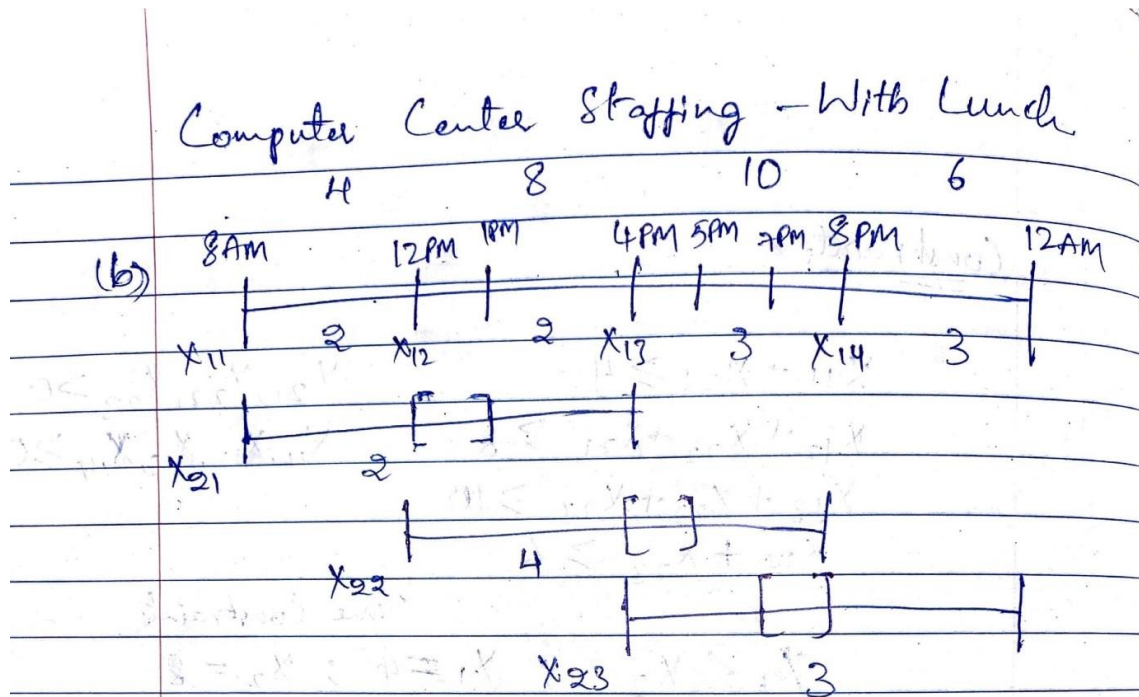 Computer Center Staffing - With Lunch
4 8 10 6
8AM 12PM 1PM 4PM 5PM 7PM 8PM 12AM
(b)
X11 2 X12 2 X13 3 X14 3
X21 2
X22 4
X23 3